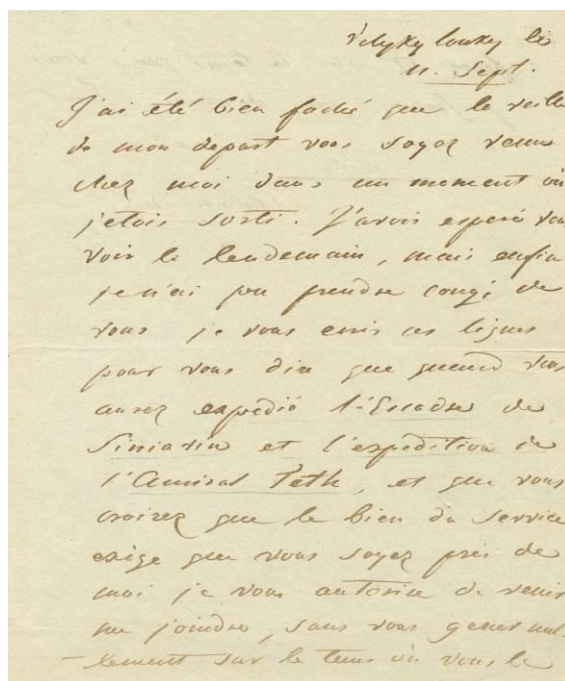 Velyky Louky le
11. Sept.
J'ai été bien faché que la veille
de mon depart vous soyez venu
chez moi dans un moment où
j'etois sorti. J'avois esperé vous
voir le lendemain, mais enfin
je n'ai pu prendre congé de
vous je vous ecris ces lignes
pour vous dire que quand vous
aurez expedié l'Escadre de
Siniavin et l'expedition de
l'Amiral Teth, et que vous
croirez que le bien du Service
exige que vous soyez près de
moi je vous autorise de venir
me joindre, sans vous gener nul-
-lement sur le tems où vous le